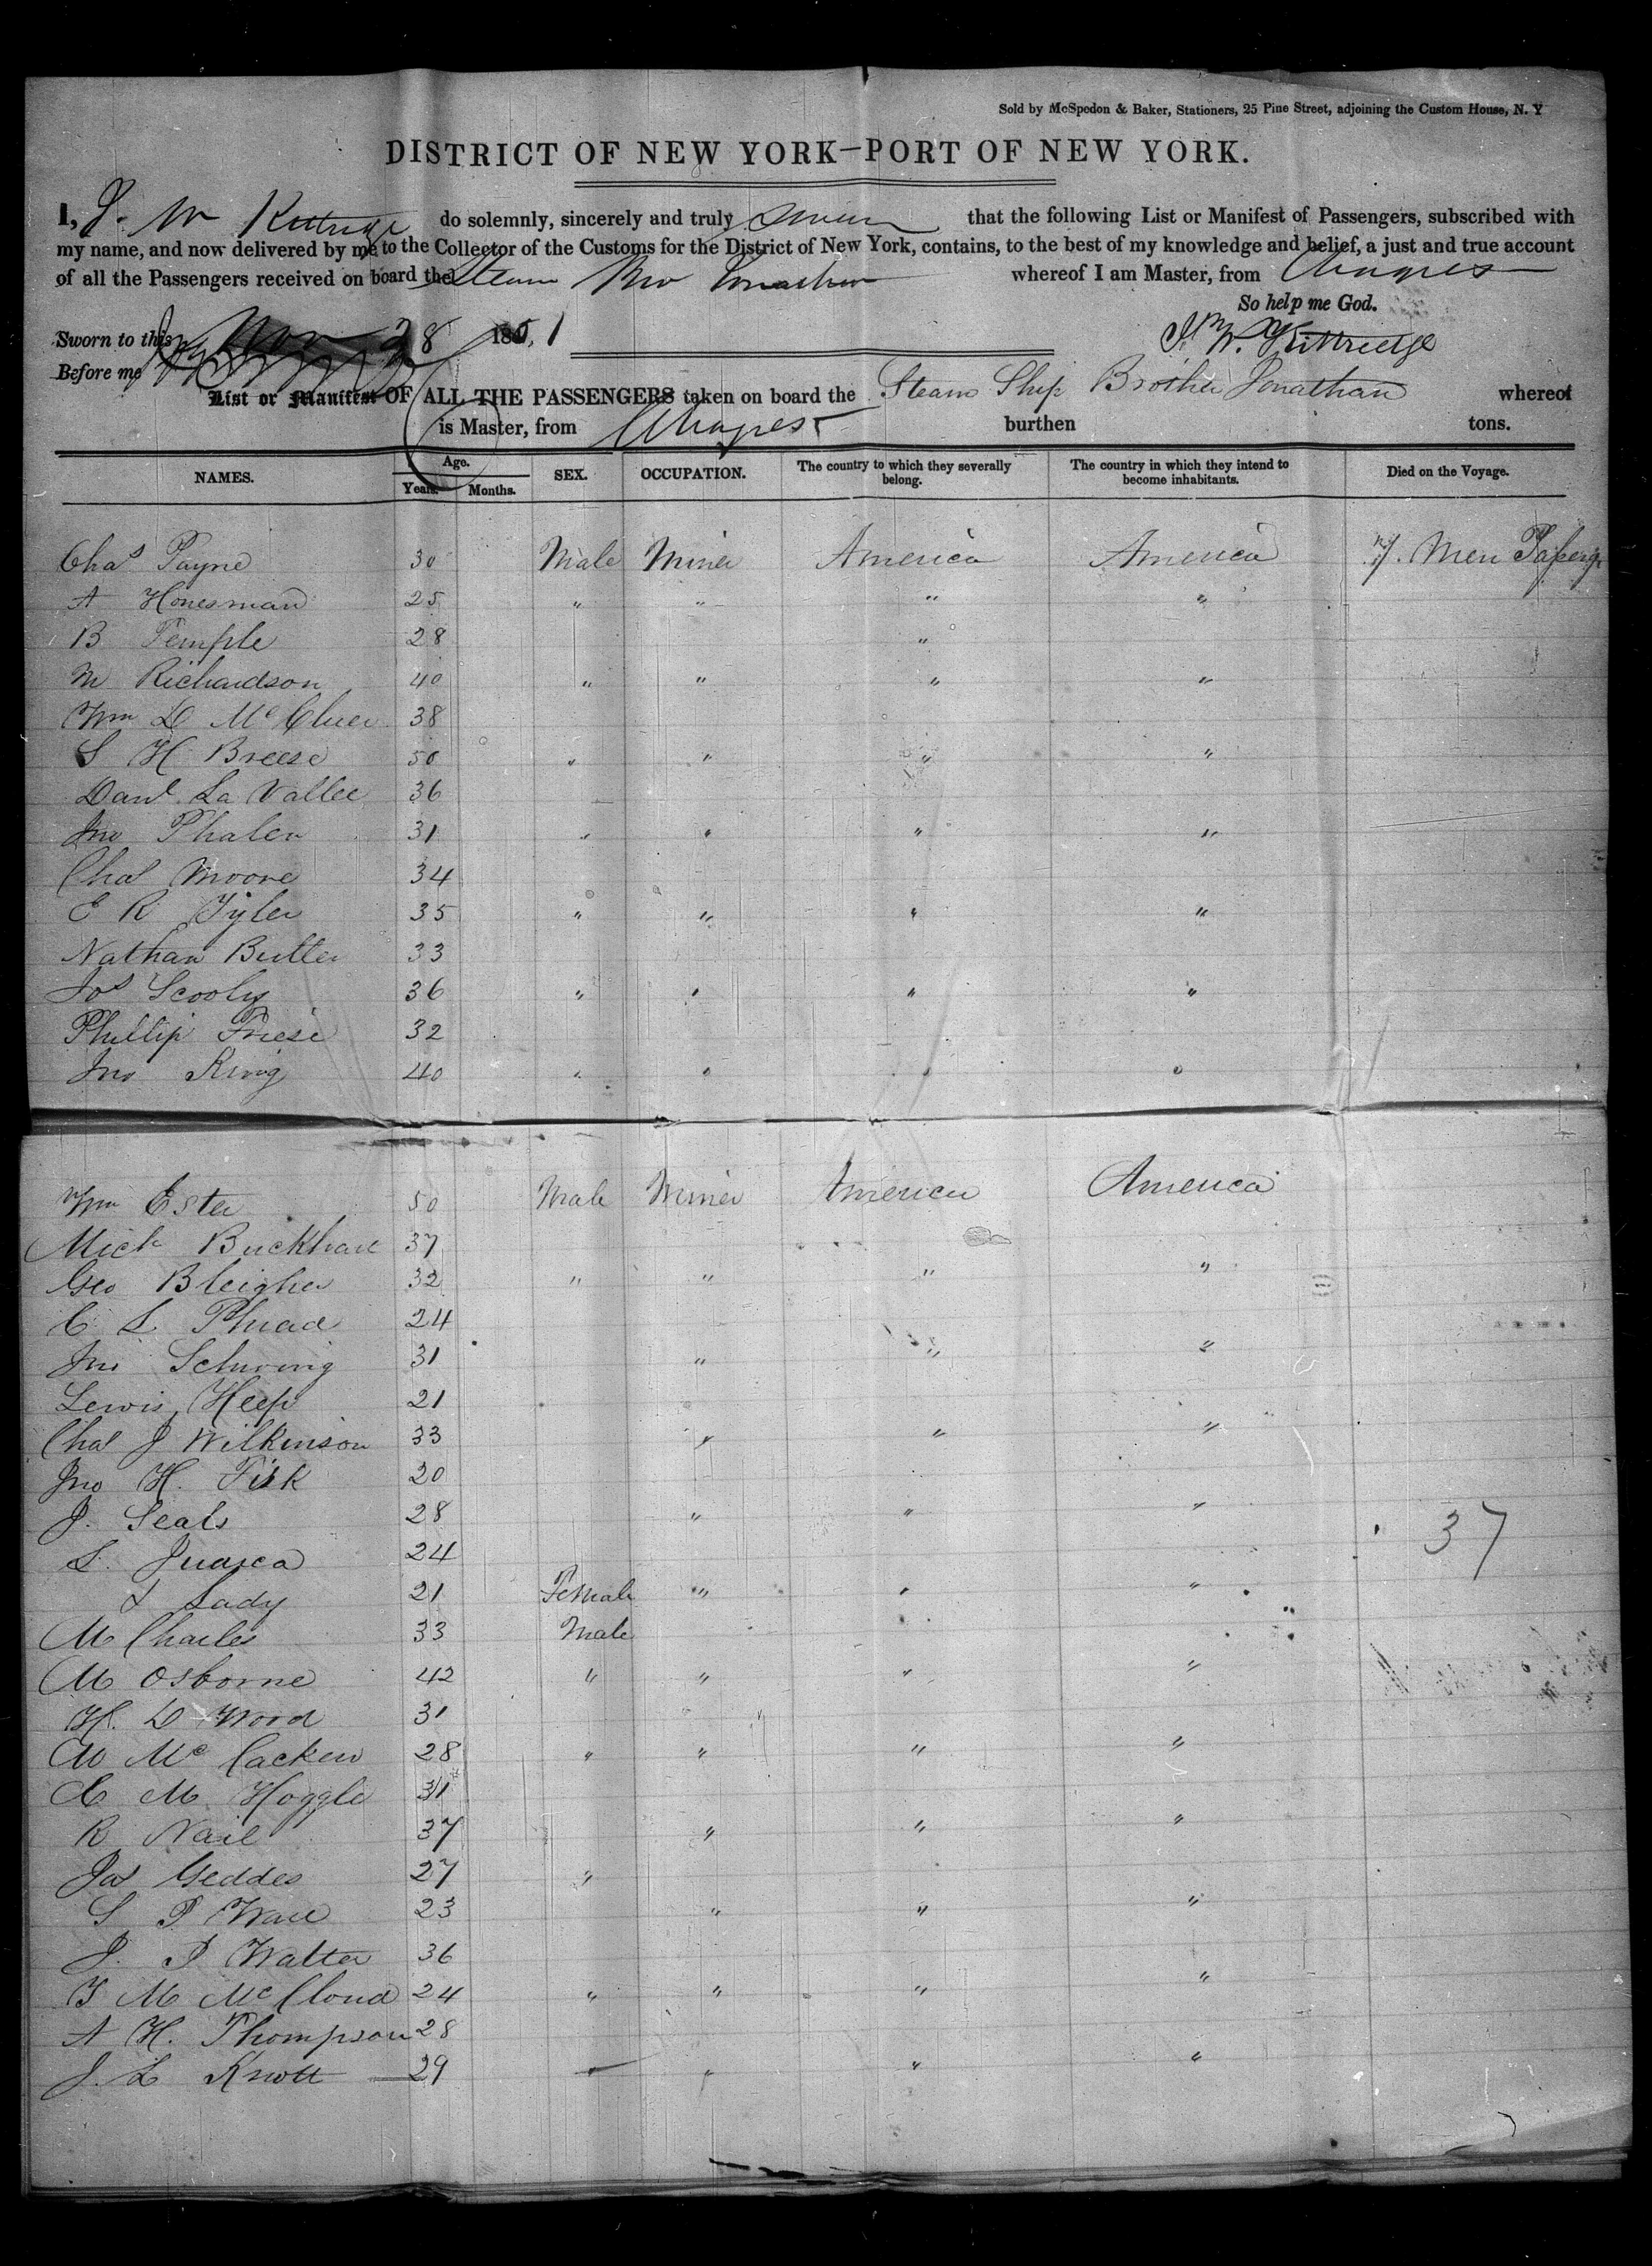 Sold by McSpedon & Baker, Stationers, 25 Pine Street, adjoining the Custom House, N. Y
DISTRICT OF NEW YORK—PORT OF NEW YORK.
I, J. W Kittredge do solemnly, sincerely and truly swear that the following List or Manifest of Passengers, subscribed with
my name, and now delivered by me to the Collector of the Customs for the District of New York, contains, to the best of my knowledge and belief, a just and true account
of all the Passengers received on board the Steam Bro Jonathan whereof I am Master, from Chagres
So help me God.
Sworn to this Nov 28 1851
W. Kittredge
Before me
List or Manifest OF ALL THE PASSENGERS taken on board the Steam Ship Brother Jonathan whereof
is Master, from Chagres burthen tons.
NAMES. Age. Years. Months. SEX. OCCUPATION. The country to which they severally belong. The country in which they intend to become inhabitants. Died on the Voyage.
Chas Payne 30 Male Miner America America Men
A Honesman 25 " " " "
B Temple 28 "
M Richardson 40 " " " "
Wm D McCluer 38
S H Breese 50 " " " "
Danl La Vallee 36
Jno Phalen 31 " " " "
Chas Moore 34
E R Tyler 35 " " " "
Nathan Butler 33
Jos Scooly 36 " " " "
Phillip Friese 32
Jno King 40 " " " "
Wm Ester 50 Male Miner America America
Mich Buckhart 37
Geo Bleigher 32 " " " "
C L 24
Jno Schwing 31 " " "
Lewis Heep 21
Chas J Wilkinson 33 " " "
Jno H. Fisk 20
J. Seals 28 " " " 37
S. 24
& Lady 21 Female " " "
M Charles 33 Male
M Osborne 42 " " " "
H. D Wood 31
W McCacken 28 " " " "
C M Hoggle 31
R Nail 37 " " "
Jas Geddes 27 "
S P Ware 23 " " "
J. P Walter 36
T M McCloud 24 " " " "
A H. Thompson 28
J. L Knott 29 " " " "